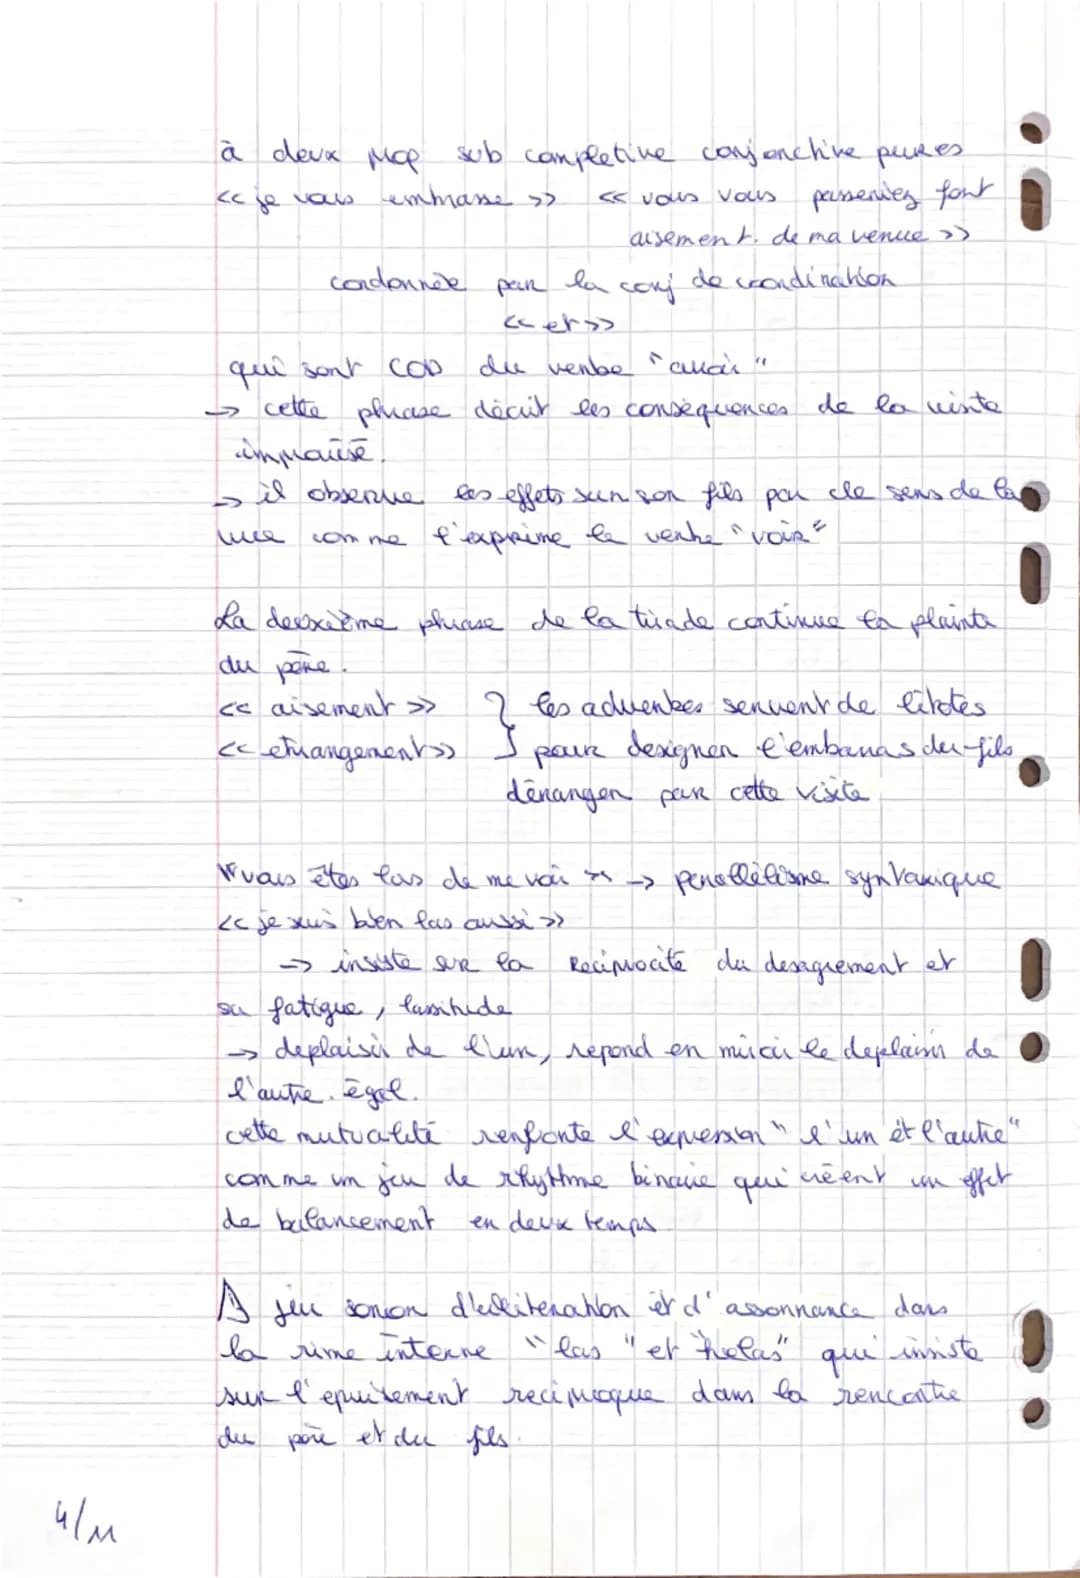 à deux prop sub completive conjonctive pures
<< je vous embrasse >> << vous vous passeriez fort
aisement. de ma venue >>
cordonnée par la conj de coordination
<< et >>
qui sont COD du verbe "
→ cette phrase décrit les conséquences de la visite
improuisé.
→ il observe les effets sur son fils par le sens de la
vue comme l'exprime le verbe "voir"
La deuxième phrase de la tirade continue la plainte
du père.
<< aisement >> } les adverbes servent de litotes
<< etrangement >> pour designer l'embarras du fils
déranger par cette visite
"vous êtes las de me voir >> → parallélisme syntaxique
<< je suis bien las aussi >>
→ insiste sur la reciprocité du desagrement et
sa fatigue, lassitude
→ deplaisir de l'un, repond en miroir le deplaisir de
l'autre. égal.
cette mutualité renforte l'expression "l'un et l'autre"
comme un jeu de rhythme binaire qui créent un effet
de balancement en deux temps
jeu sonor d'aliteration et d'assonnance dans
la rime interne "las" et "helas" qui insiste
sur l'epuisement reciproque dans la rencontre
du père et du fils.
4/11